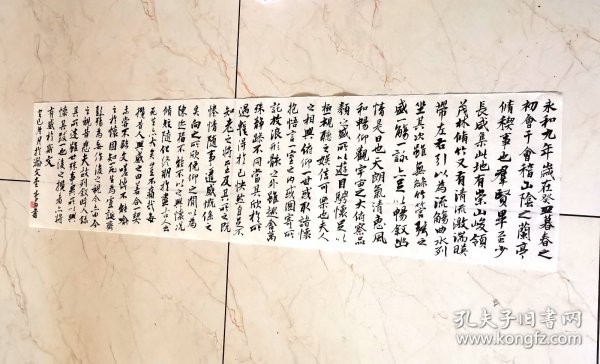 永和九年歲在癸丑暮春之
初會于會稽山陰之蘭亭
脩稧事也羣賢畢至少
長咸集此地有崇山峻領
茂林脩竹又有清流激湍暎
帶左右引以為流觴曲水列
坐其次雖無絲竹管弦之
盛一觴一詠亦足以暢敘幽
情是日也天朗氣清惠風
和暢仰觀宇宙之大俯察品
類之盛所以遊目騁懷足以
極視聽之娛信可樂也夫人
之相與俯仰一世或取諸懷
抱悟言一室之內或因寄所
託放浪形骸之外雖趣舍萬
殊靜躁不同當其欣於所
遇暫得於己快然自足不
知老之將至及其所之既
惓情隨事遷感慨係之
矣向之所欣俛仰之間以為
陳迹猶不能不以之興懷況
脩短隨化終期於盡古人云
死生亦大矣豈不痛哉每
攬昔人興感之由若合一契
未嘗不臨文嗟悼不能喻
之於懷固知一死生為虛誕齊
彭殤為妄作後之視今亦由今
之視昔悲夫故列敘時人錄
其所述雖世殊事異所以興
懷其致一也後之攬者亦將
有感於斯文
孔夫子旧书网